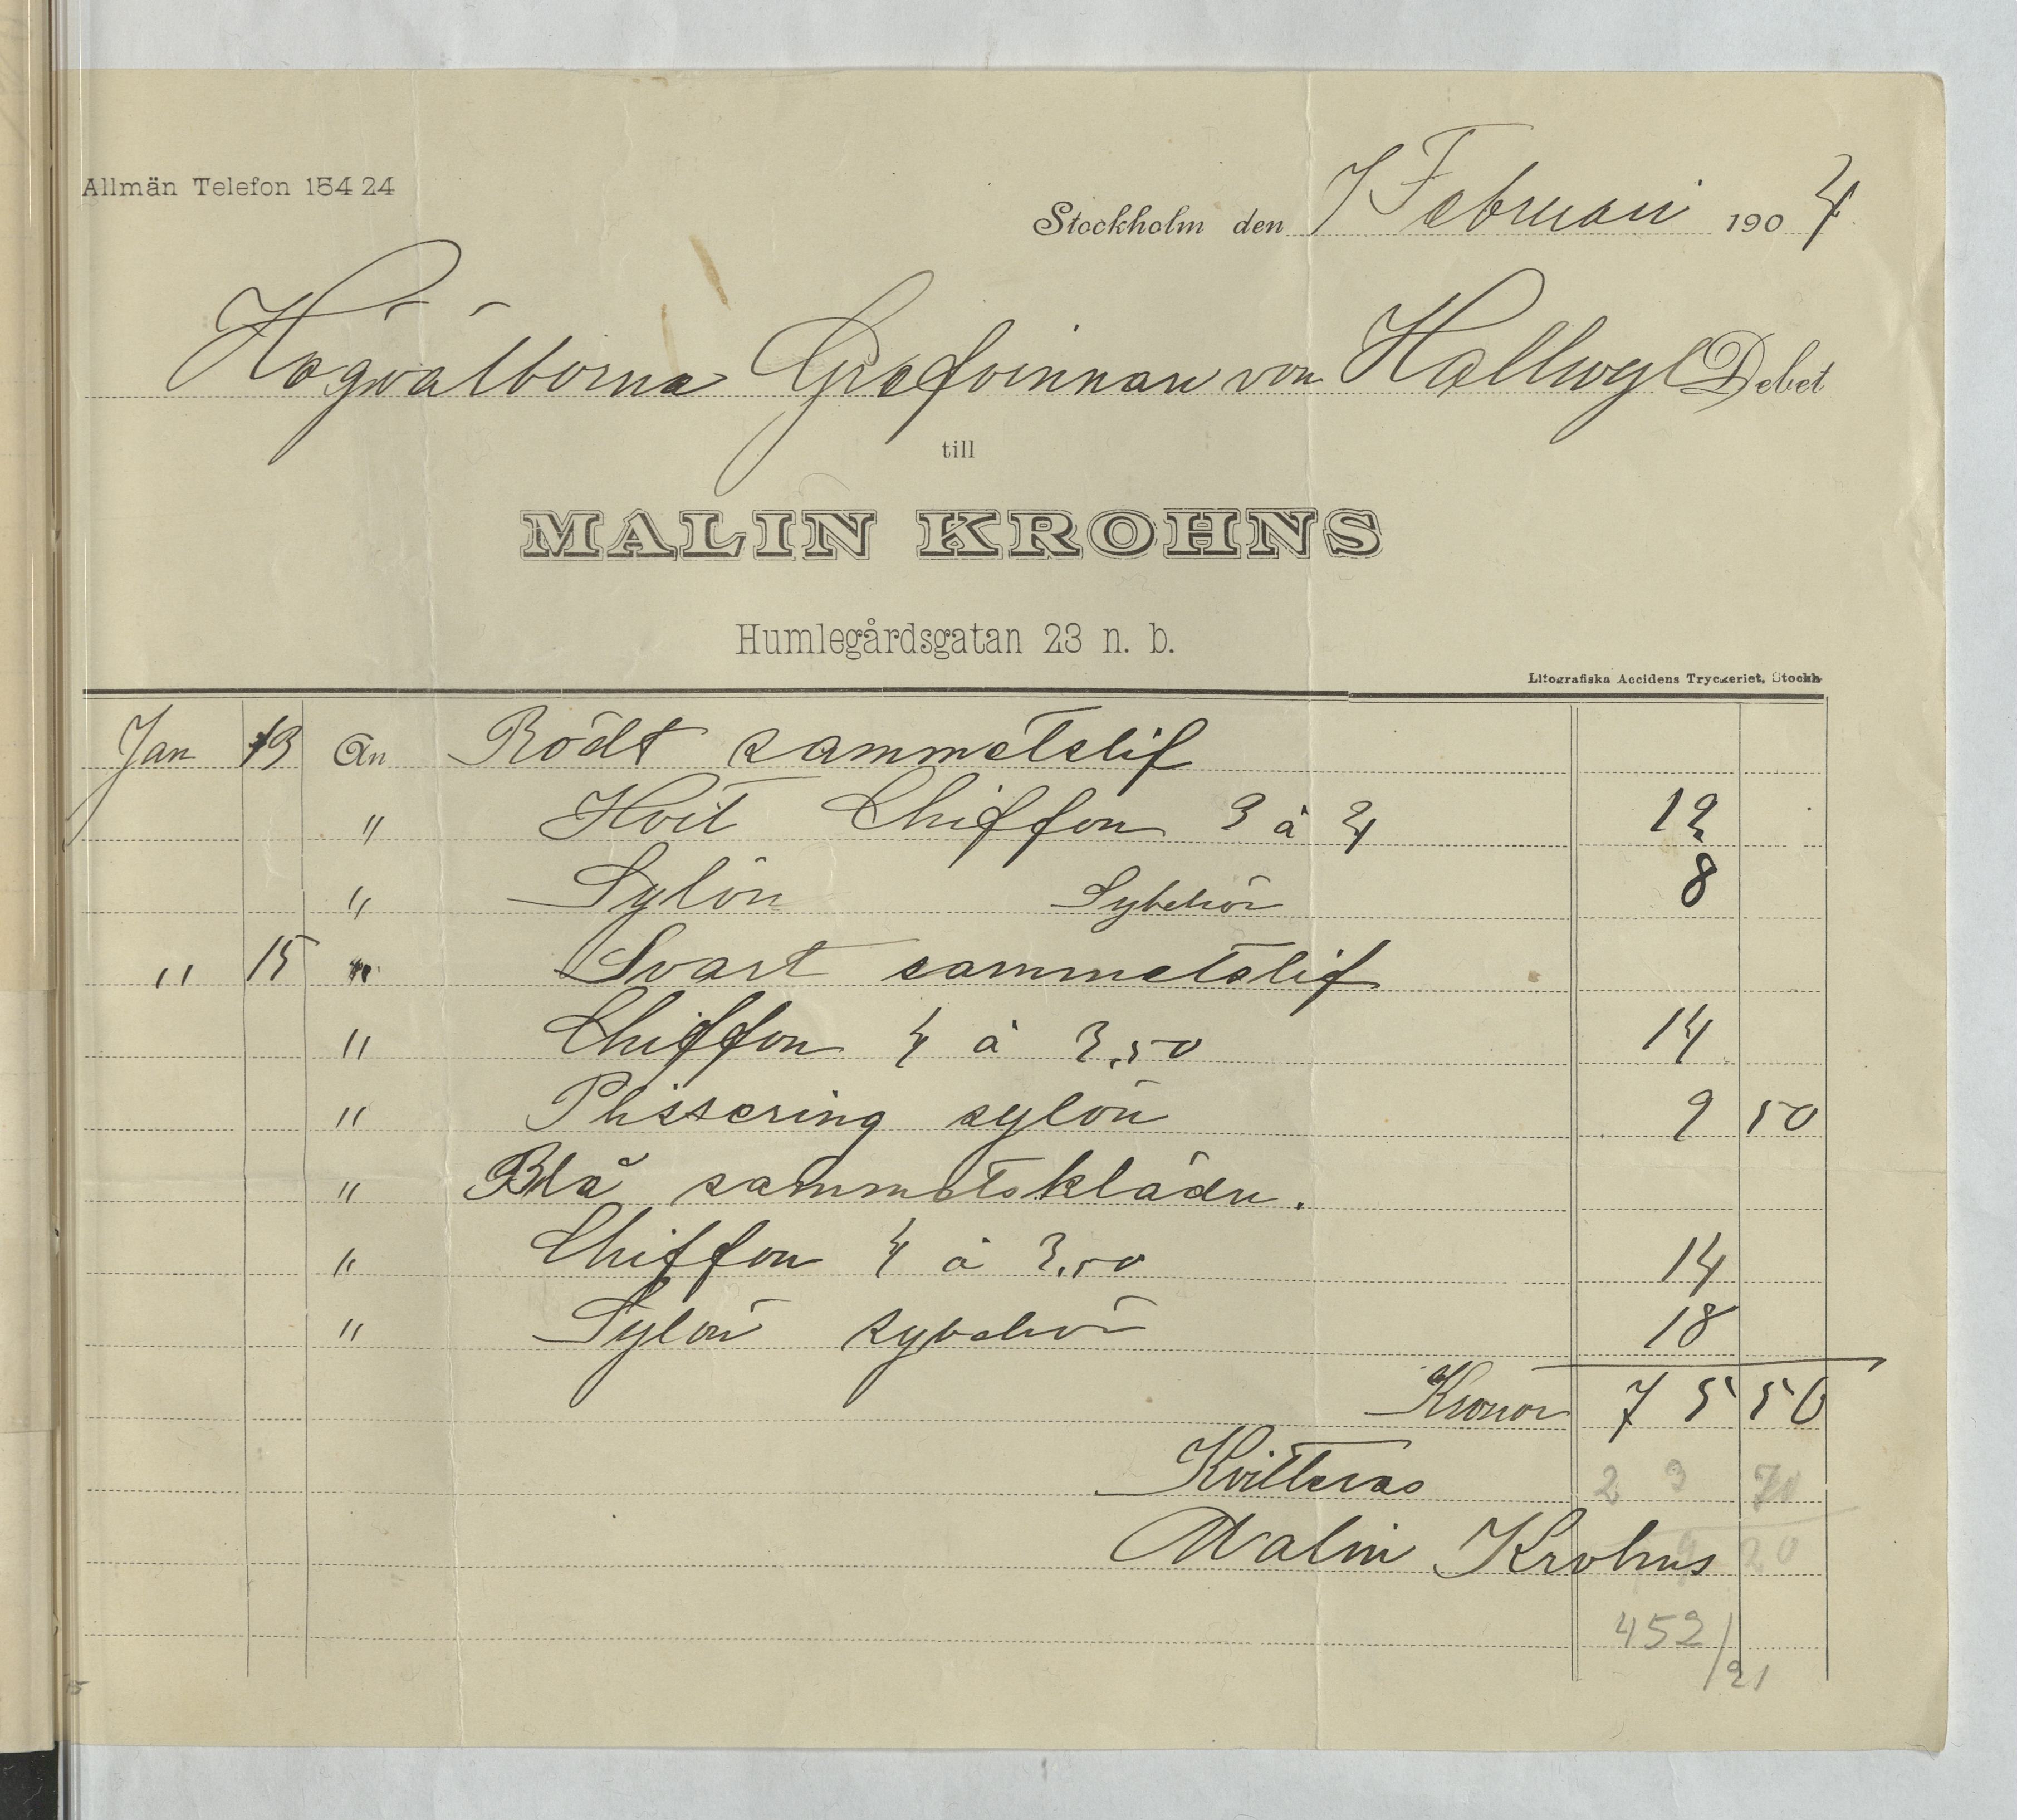 Allmän Telefon 154 24
Stockholm den 7 Februari 1904
Högvälborna Grefvinnan von Hallwyl Debet
till
MALIN KROHNS
Humlegårdsgatan 23 n. b.
Litografiska Accidens Tryckeriet, Stockh.
Jan 13 An Rödt sammetslif
" Hvit Chiffon 3 à 4 12
" Sylön Sybehör 8
" 15 " Svart sammetslif
" Chiffon 4 à 3,50 14
" Plissering sylön 9 50
" Blå sammetsklädn.
" Chiffon 4 à 3.50 14
" Sylön sybehör 18
Kronor 75 50
Kvitteras 23 70
Malin Krohns 20
452/21